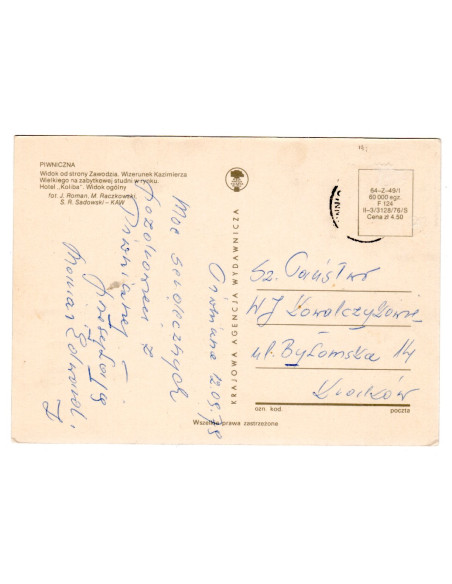 PIWNICZNA
Widok od strony Zawodzia. Wizerunek Kazimierza
Wielkiego na zabytkowej studni w rynku.
Hotel „Koliba". Widok ogólny
fot. J. Roman, M. Raczkowski,
S. R. Sadowski - KAW
Piwniczna 12.09.79
Moc serdecznych
pozdrowień z
Piwnicznej
przesyłają
Roman, Edward
KRAJOWA AGENCJA WYDAWNICZA
64-Z-49/1
60 000 egz.
F 124
II-3/3128/76/S
Cena zł 4.50
Sz. Państwo
WJ Kowalczykowie
ul. Bytomska 14
Kraków
ozn. kod. poczta
Wszelkie prawa zastrzeżone